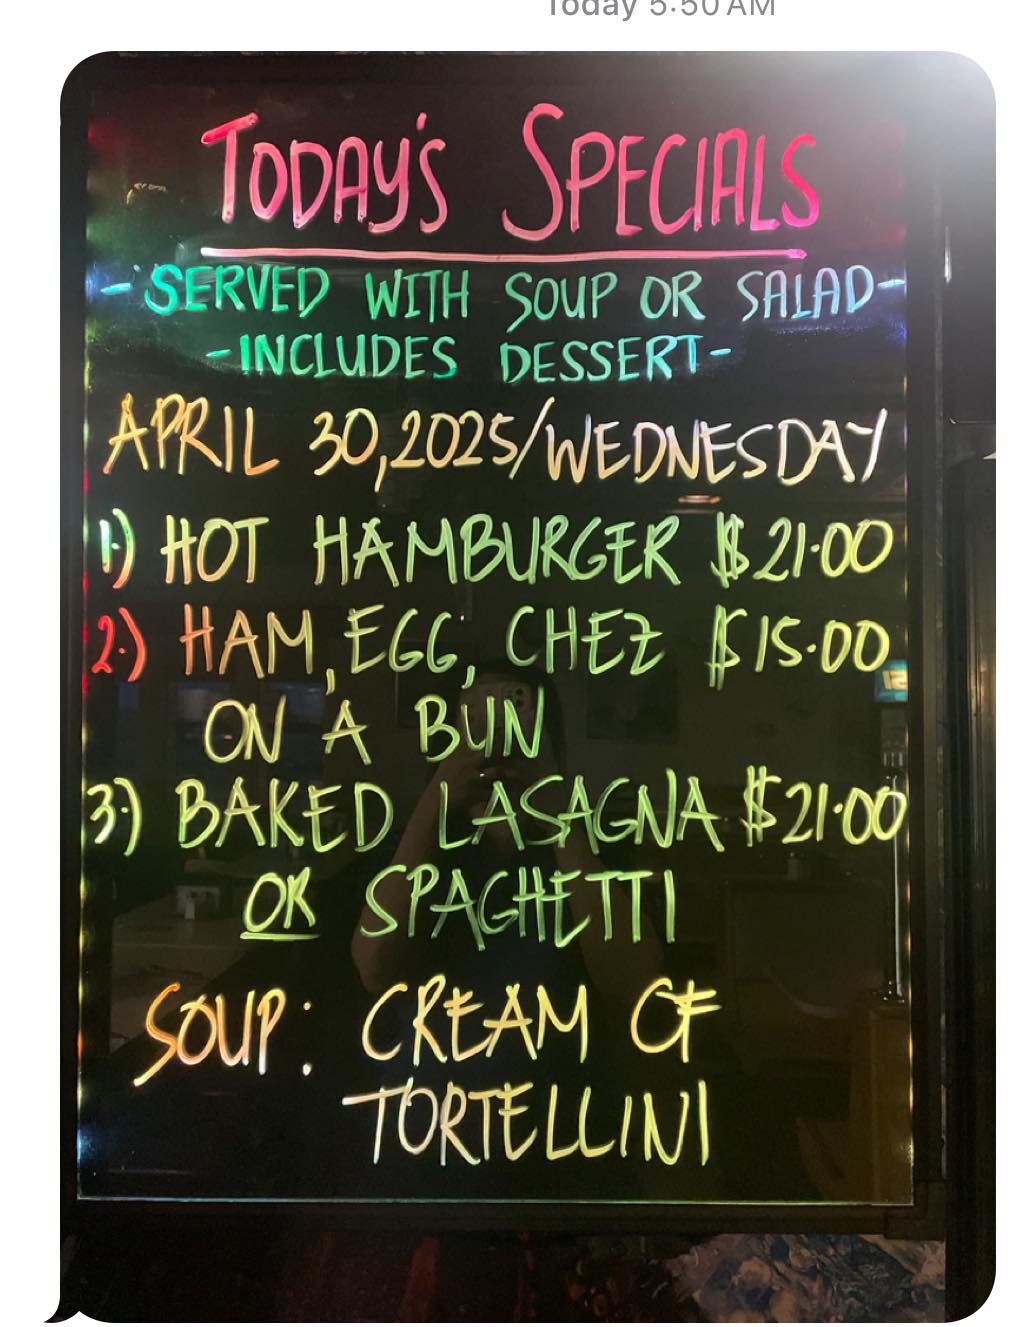 Today 5:50 AM
TODAY'S SPECIALS
-SERVED WITH SOUP OR SALAD-
-INCLUDES DESSERT-
APRIL 30,2025/WEDNESDAY
1.) HOT HAMBURGER $21.00
2.) HAM, EGG, CHEZ $15.00
ON A BUN
3.) BAKED LASAGNA $21.00
OR SPAGHETTI
SOUP: CREAM OF
TORTELLINI